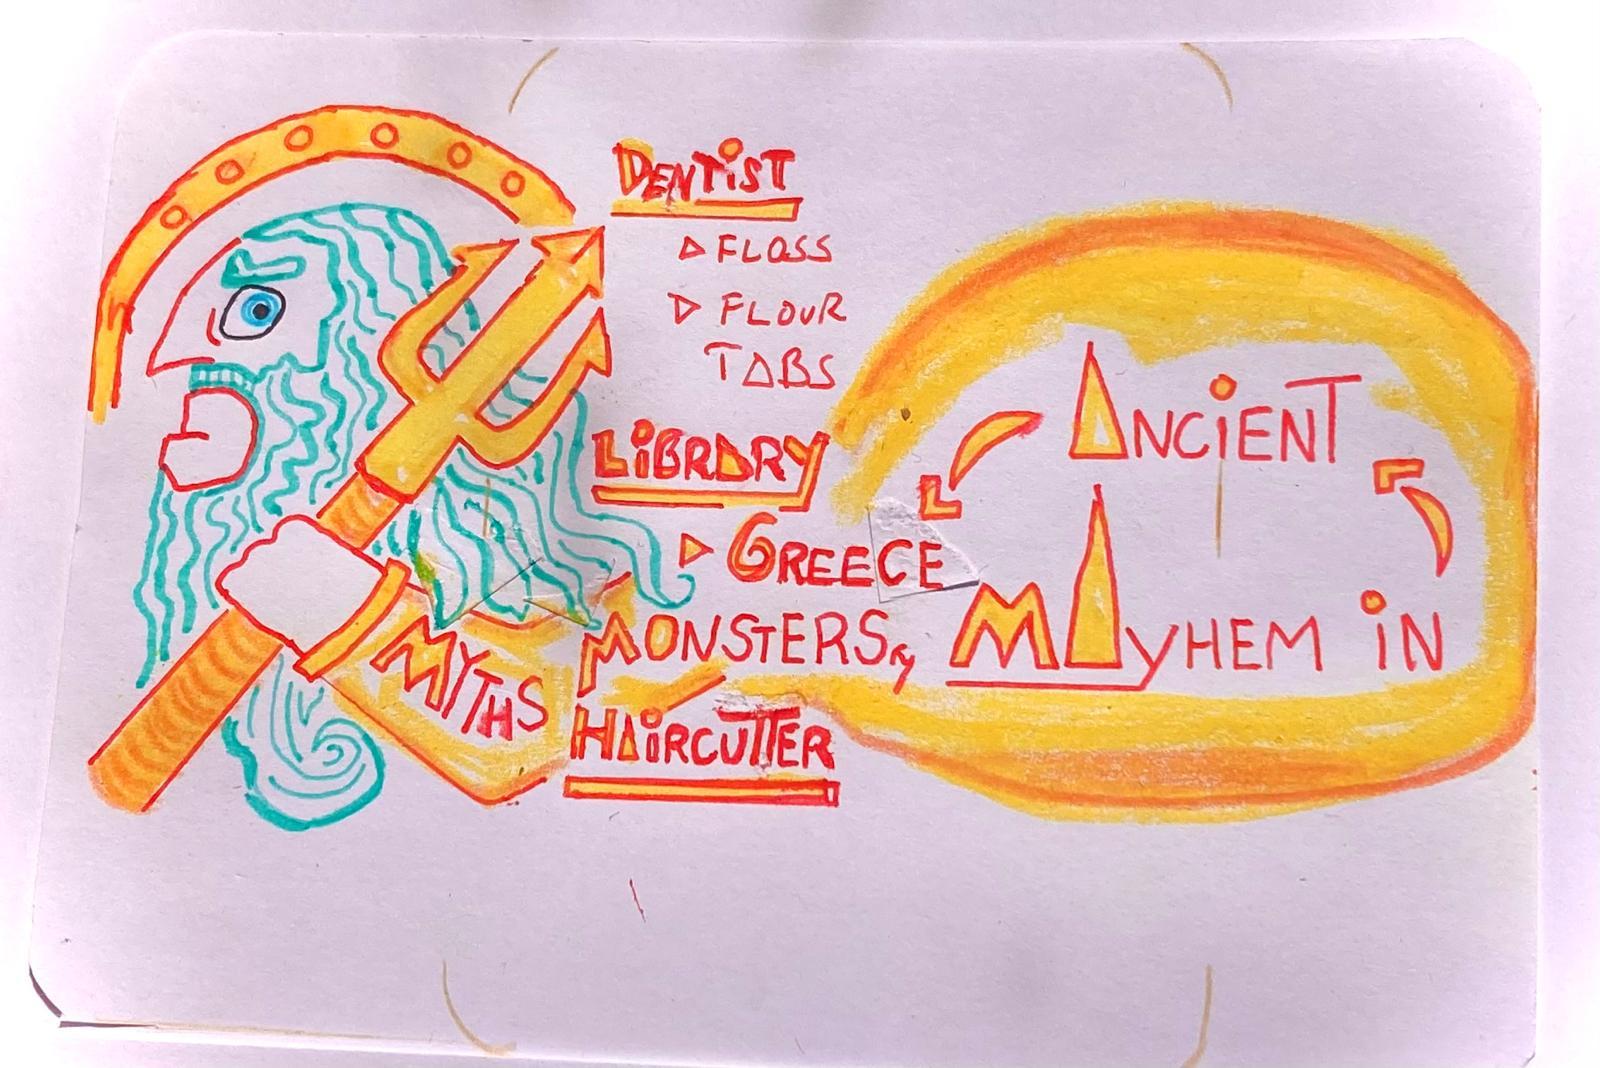 DENTiST
FLOSS
FLOUR
TABS
LiBRARY
GREECE
MYTHS
MONSTERS,
HAiRCUTTER
ANCiENT
MAYHEM iN